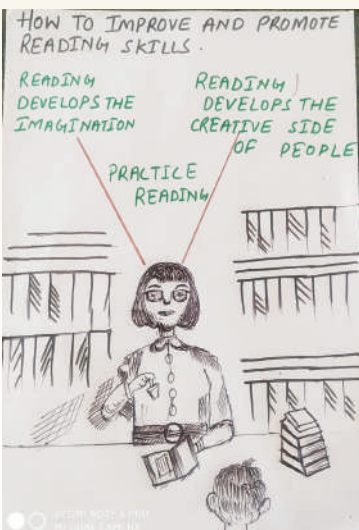 HOW TO IMPROVE AND PROMOTE
READING SKILLS.
READING
DEVELOPS THE
IMAGINATION
READING
DEVELOPS THE
CREATIVE SIDE
OF PEOPLE
PRACTICE
READING